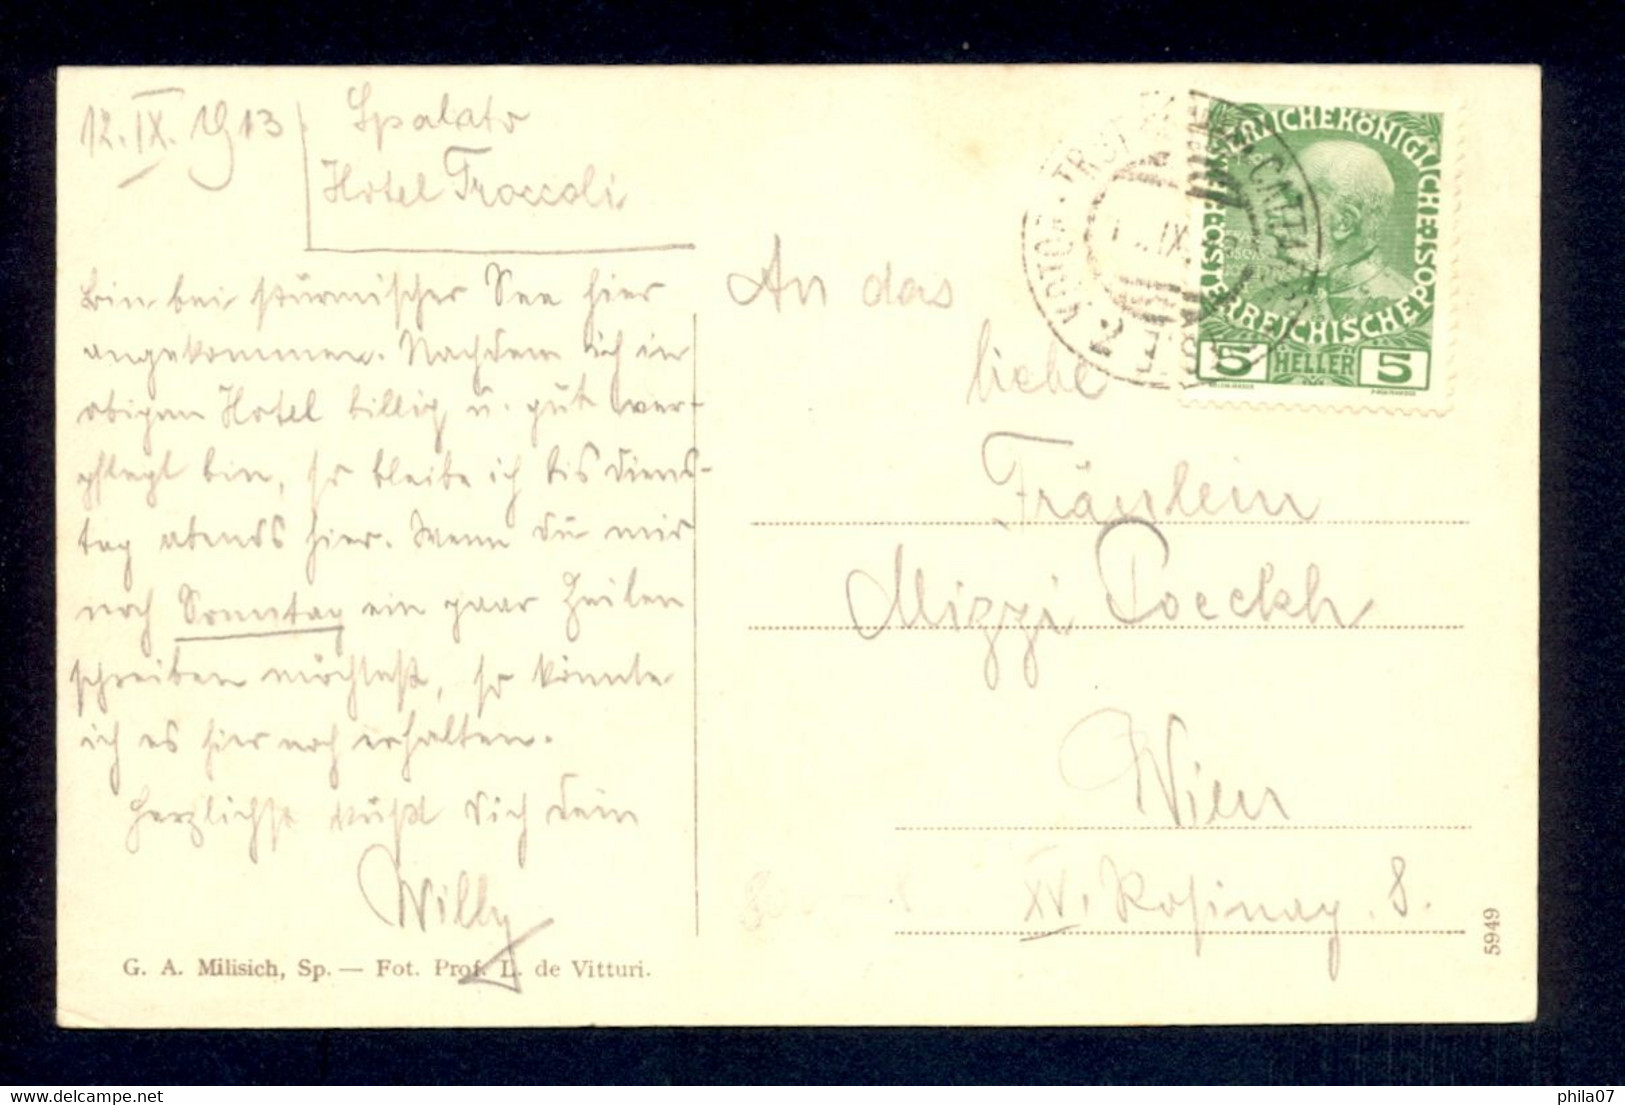 12. IX. 1913
Spalato
Hotel Troccoli
Bin bei stürmischer See hier
angekommen. Nachdem ich im
obigen Hotel billig u. gut ver-
pflegt bin, so bleibe ich bis Diens-
tag abends hier. Wenn Du mir
noch Sonntag ein paar Zeilen
schreiben möchtest, so könnte
ich es hier noch erhalten.
Herzlichst küßt Dich Dein
Willy
G. A. Milisich, Sp. — Fot. Prof. L. de Vitturi.
An das
liebe
Fräulein
Mizzi Poeckh
Wien
XV. Rosinag. 8.
5949
KAISERLICHEKÖNIGLICHE
ÖSTERREICHISCHEPOST
5 HELLER 5
phila07